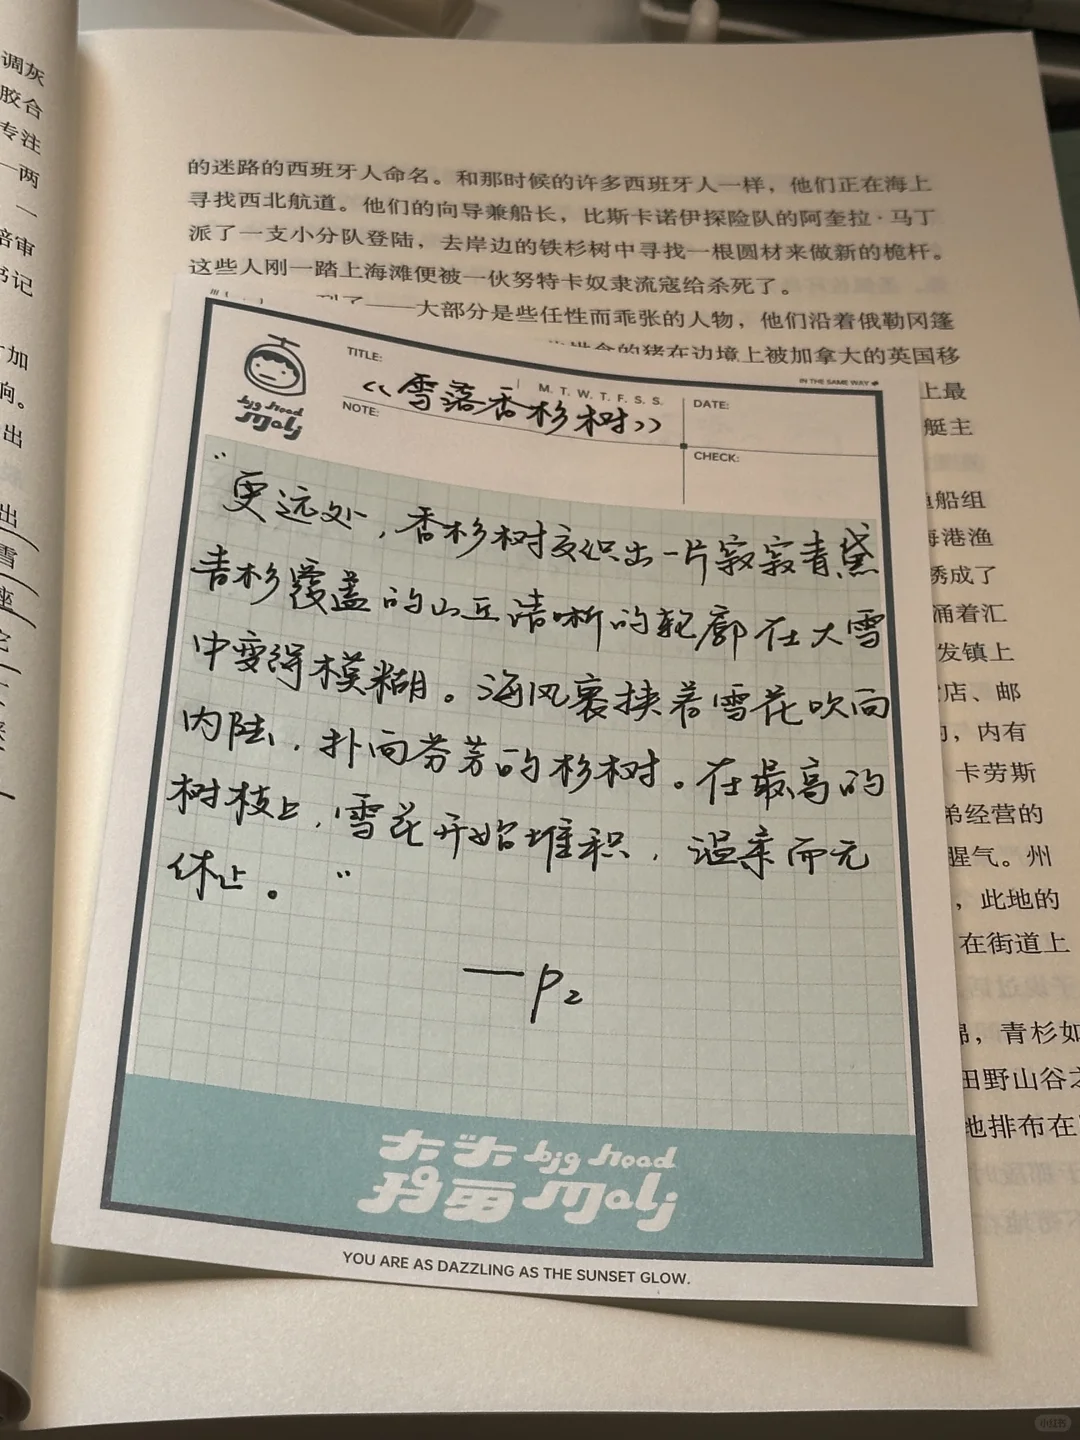 调灰
胶合
专注
一两
一
陪审
书记
加
响。
出
出
雪
座
它
的迷路的西班牙人命名。和那时候的许多西班牙人一样，他们正在海上
寻找西北航道。他们的向导兼船长，比斯卡诺伊探险队的阿奎拉·马丁
派了一支小分队登陆，去岸边的铁杉树中寻找一根圆材来做新的桅杆。
这些人刚一踏上海滩便被一伙努特卡奴隶流寇给杀死了。
到了——大部分是些任性而乖张的人物，他们沿着俄勒冈篷
的猪在边境上被加拿大的英国移
上最
艇主
渔船组
海港渔
绣成了
涌着汇
发镇上
店、邮
，内有
卡劳斯
弟经营的
腥气。州
，此地的
在街道上
，青杉如
田野山谷之
地排布在
big head
Molj
TITLE:
M. T. W. T. F. S. S.
IN THE SAME WAY
《雪落香杉树》
NOTE:
DATE:
CHECK:
“更远处，香杉树交织出一片寂寂青黛
青杉覆盖的山丘清晰的轮廓在大雪
中变得模糊。海风裹挟着雪花吹向
内陆，扑向芬芳的杉树。在最高的
树枝上，雪花开始堆积，温柔而无
休止。”
—P2
大头 big head
玛丽 Molj
YOU ARE AS DAZZLING AS THE SUNSET GLOW.
小红书